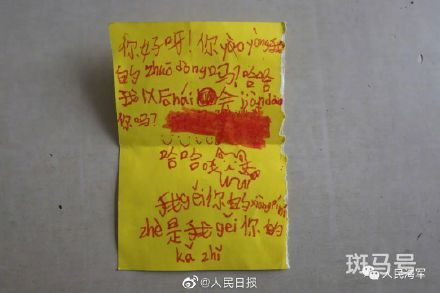 你好呀！你yào yòng我
的zhuō dōng吗？哈哈
我以后hái会jiàn dào
你吗？
哈哈
我gěi你的
zhè是我gěi你的
kǎ zhǐ
@人民日报
斑马号
人民海军